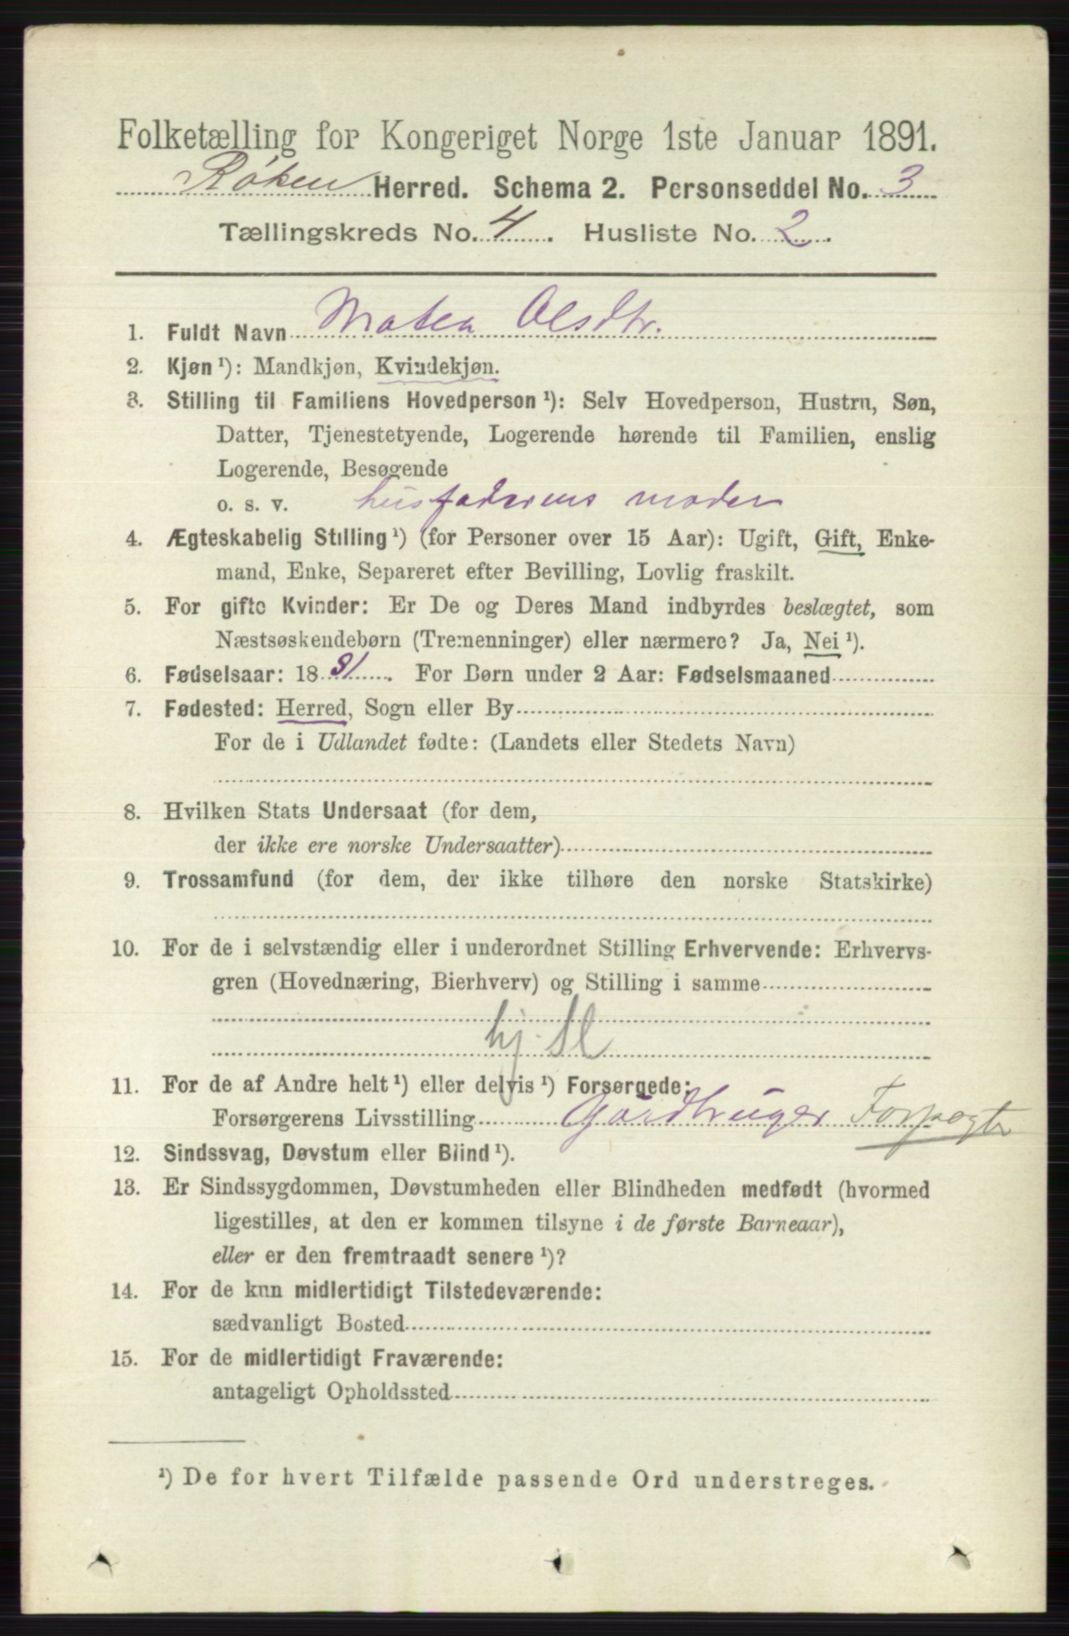 Folketælling for Kongeriget Norge 1ste Januar 1891.
Røken Herred. Schema 2. Personseddel No. 3
Tællingskreds No. 4. Husliste No. 2.
1. Fuldt Navn Matea Olsdtr.
2. Kjøn ¹): Mandkjøn, Kvindekjøn.
3. Stilling til Familiens Hovedperson ¹): Selv Hovedperson, Hustru, Søn,
Datter, Tjenestetyende, Logerende hørende til Familien, enslig
Logerende, Besøgende
o. s. v. husfaderens moder
4. Ægteskabelig Stilling ¹) (for Personer over 15 Aar): Ugift, Gift, Enke-
mand, Enke, Separeret efter Bevilling, Lovlig fraskilt.
5. For gifte Kvinder: Er De og Deres Mand indbyrdes beslægtet, som
Næstsøskendebørn (Tremenninger) eller nærmere? Ja, Nei ¹).
6. Fødselsaar: 18 . For Børn under 2 Aar: Fødselsmaaned
7. Fødested: Herred, Sogn eller By
For de i Udlandet fødte: (Landets eller Stedets Navn)
8. Hvilken Stats Undersaat (for dem,
der ikke ere norske Undersaatter)
9. Trossamfund (for dem, der ikke tilhøre den norske Statskirke)
10. For de i selvstændig eller i underordnet Stilling Erhvervende: Erhvervs-
gren (Hovednæring, Bierhverv) og Stilling i samme
hj. Sl
11. For de af Andre helt ¹) eller delvis ¹) Forsørgede:
Forsørgerens Livsstilling Gårdbruger Forpagter
12. Sindssvag, Døvstum eller Blind ¹).
13. Er Sindssygdommen, Døvstumheden eller Blindheden medfødt (hvormed
ligestilles, at den er kommen tilsyne i de første Barneaar),
eller er den fremtraadt senere ¹)?
14. For de kun midlertidigt Tilstedeværende:
sædvanligt Bosted
15. For de midlertidigt Fraværende:
antageligt Opholdssted
¹) De for hvert Tilfælde passende Ord understreges.